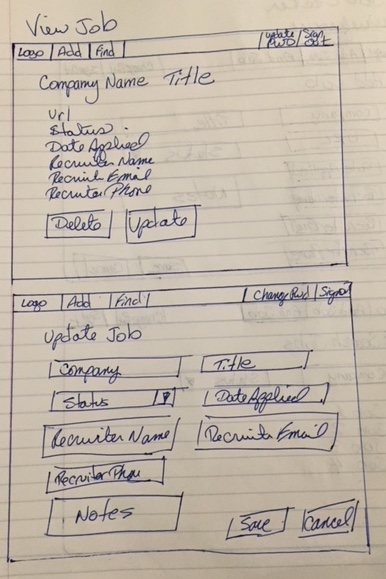 View Job
Logo | Add | Find | Update PWD | Sign Out
Company Name Title
Url
Status
Date Applied
Recruiter Name
Recruit Email
Recruiter Phone
Delete Update
Logo | Add | Find | Change Pwd | Signout
Update Job
Company Title
Status Date Applied
Recruiter Name Recruiter Email
Recruiter Phone
Notes Save Cancel